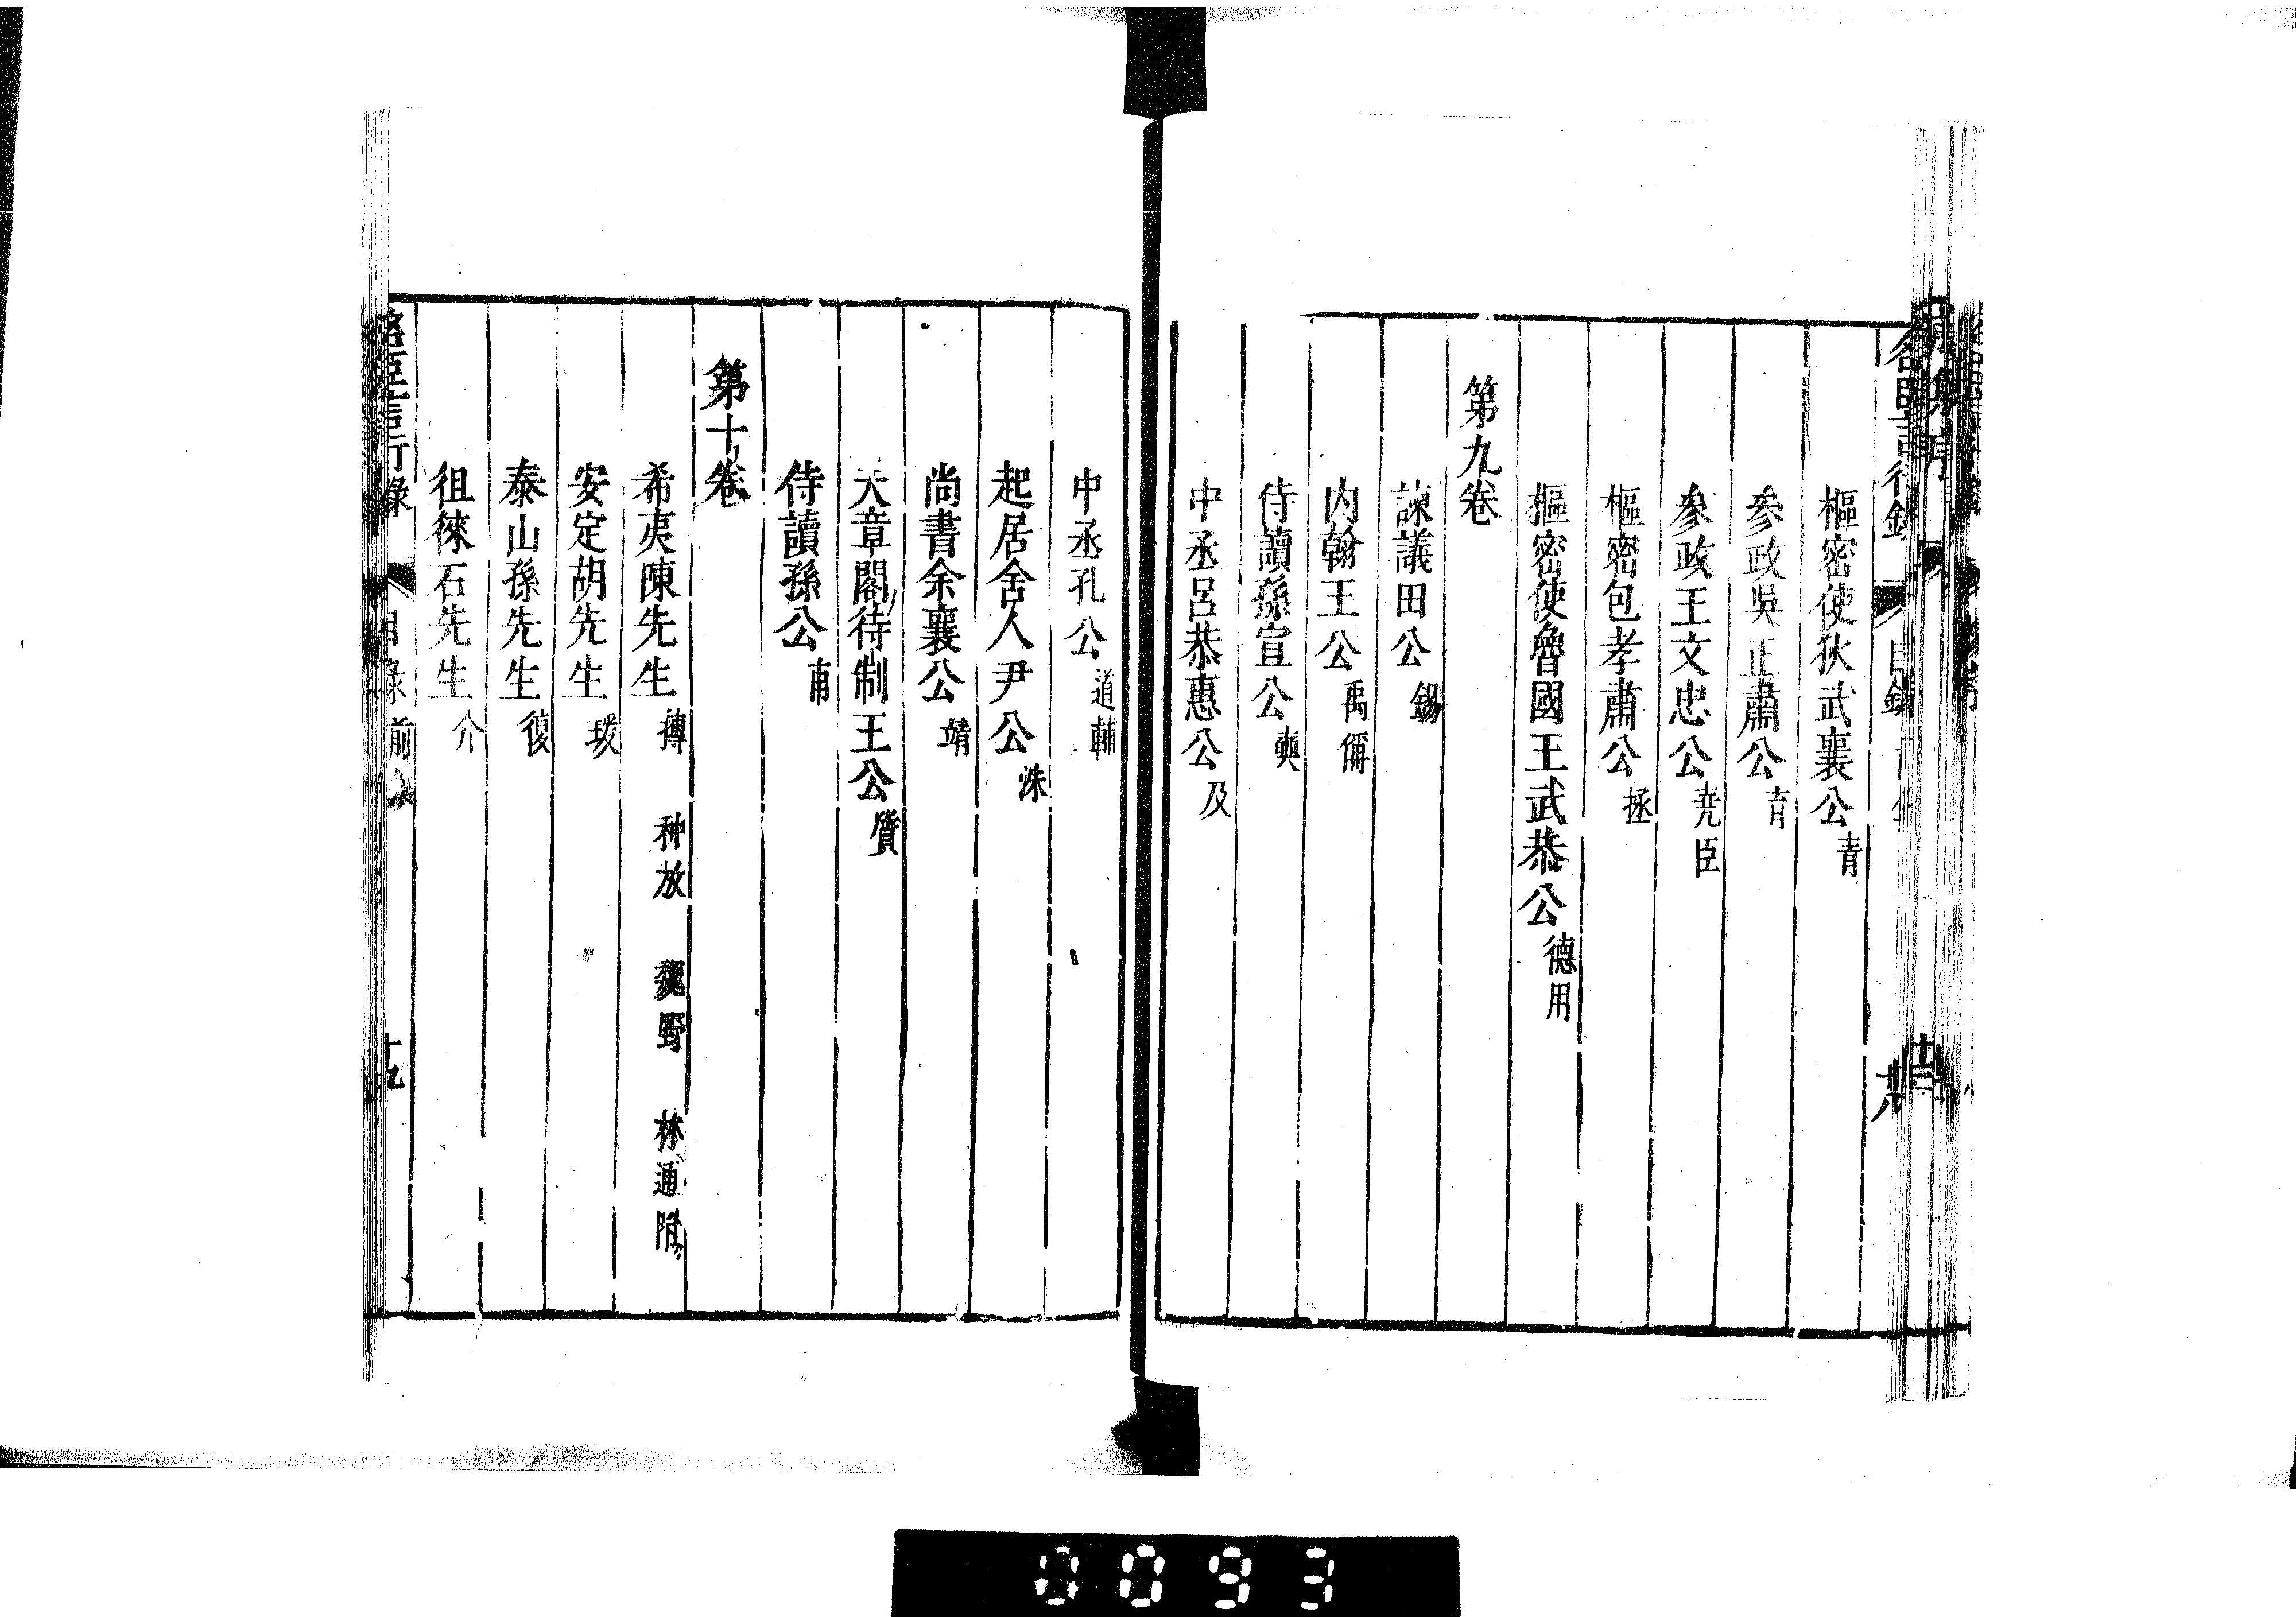 樞密使狄武襄公青
參政吳正肅公育
參政王文忠公堯臣
樞密包孝肅公拯
樞密使魯國王武恭公德用
第九卷
諫議田公錫
内翰王公禹偁
侍讀孫宣公奭
中丞呂恭惠公及
中丞孔公道輔
起居舍人尹公洙
尚書余襄公靖
天章閣待制王公質
侍讀孫公甫
第十卷
希夷陳先生摶 种放 魏野 林逋附
安定胡先生瑗
泰山孫先生復
徂徠石先生介
名臣言行錄 目錄前 十九
0093